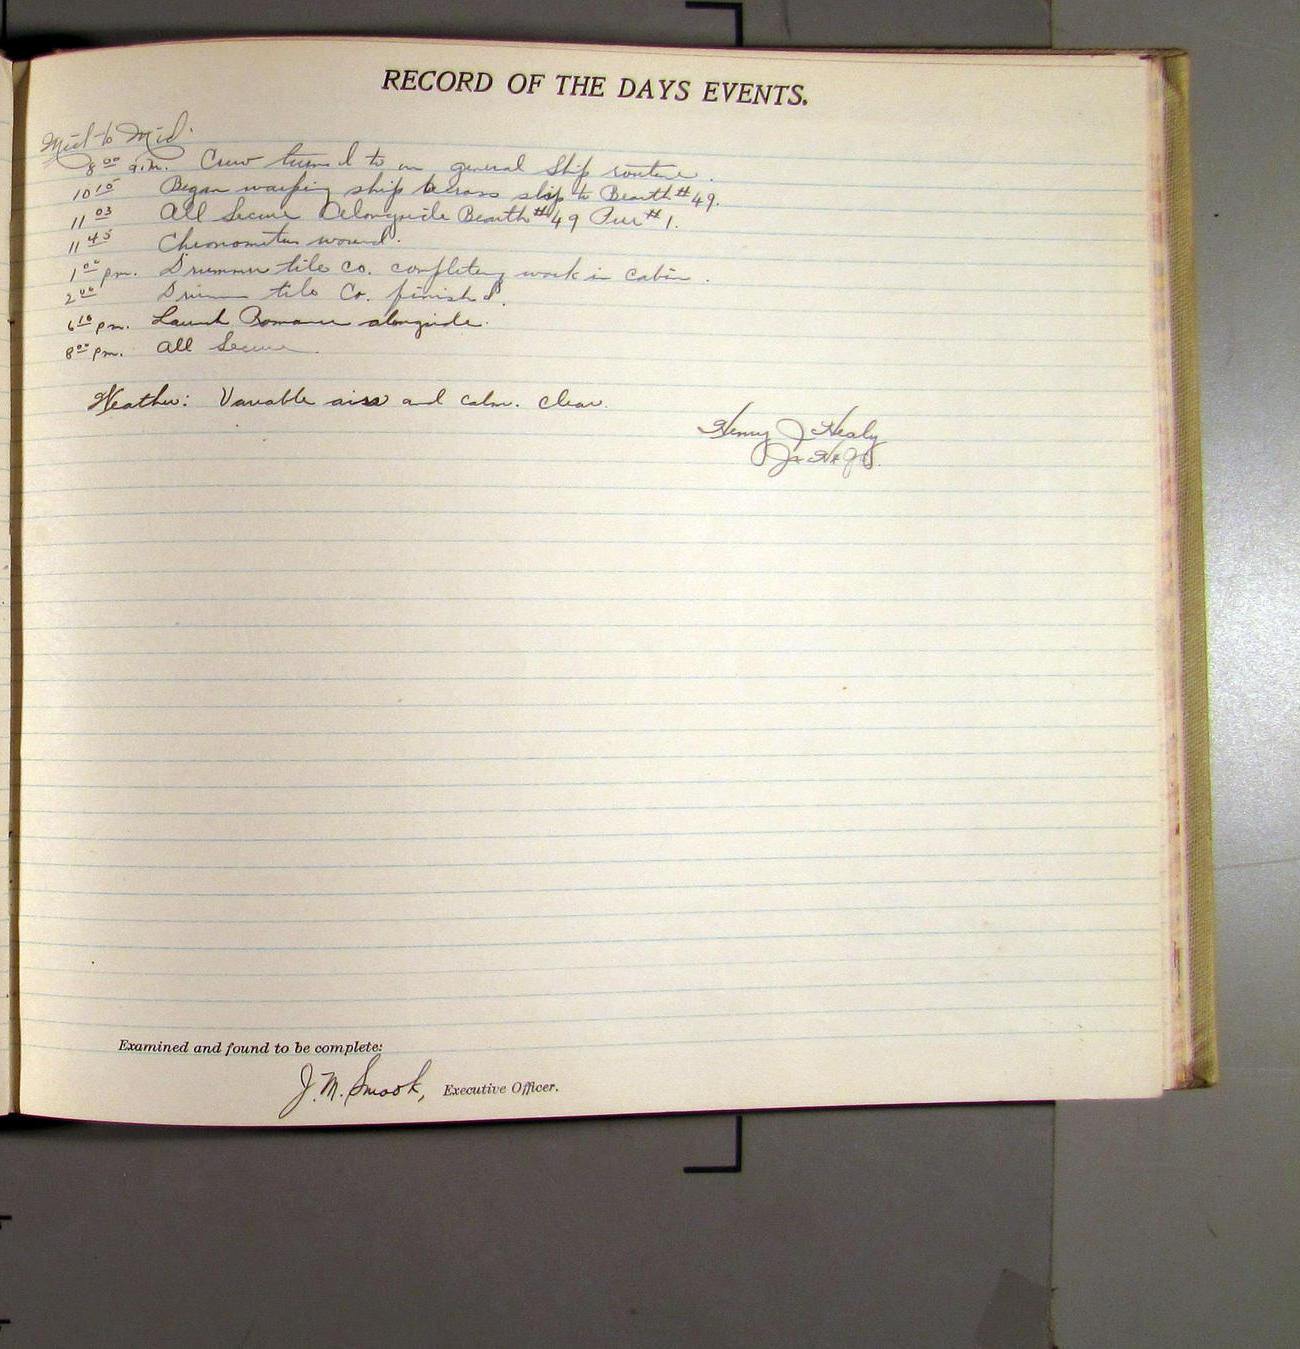 RECORD OF THE DAYS EVENTS.
Mid to Mid.
8 00 a.m. Crew turned to on general Ship routine.
10 15 Began warping ship across slip to Bearth #49.
11 03 All Secure alongside Bearth #49 Pier #1.
11 45 Chronometers wound.
1 00 pm. Drummer tile co. completing work in cabin.
2 00 tile Co. finished.
6 10 pm. Launch Romance alongside.
8 00 pm. All Secure.
Weather: Variable airs and calm. Clear.
Henry J Healy
Examined and found to be complete:
J. M. Smook, Executive Officer.